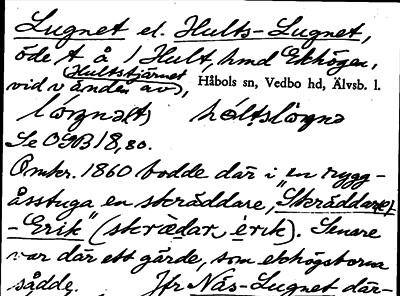 Lugnet el. Hults-Lugnet,
öde t å 1 Hult, hmd Ekhögen,
(Hultstjärnet)
vid v änden av, Håbols sn, Vedbo hd, Älvsb. l.
lö̀ŋnə(t) hóltslöŋnə
Se OGB 18, 80.
Omkr. 1860 bodde där i en rygg-
åsstuga en skräddare, "Skräddare/
-Erik" (skrædar, èrik). Senare
var där ett gärde, som ekhögstorna
sådde. Jfr Näs-Lugnet där-